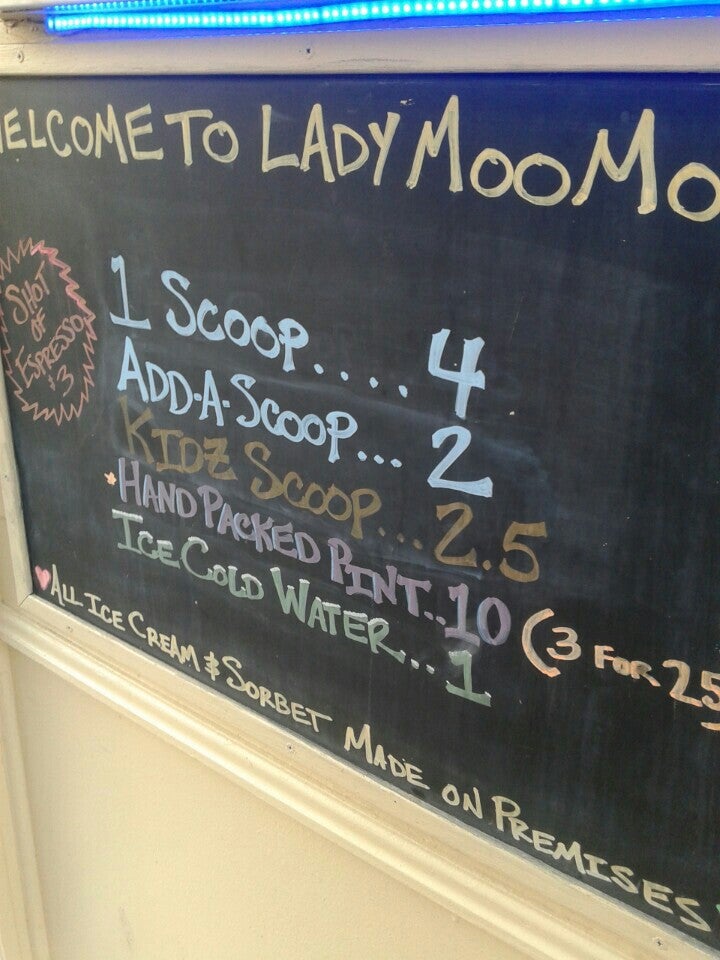 WELCOME TO LADY MOO MO
SHOT
OF
ESPRESSO
$3
1 SCOOP.... 4
ADD-A-SCOOP... 2
KIDZ SCOOP... 2.5
*HAND PACKED PINT.. 10 (3 FOR 25
ICE COLD WATER... 1
♥ALL ICE CREAM & SORBET MADE ON PREMISES